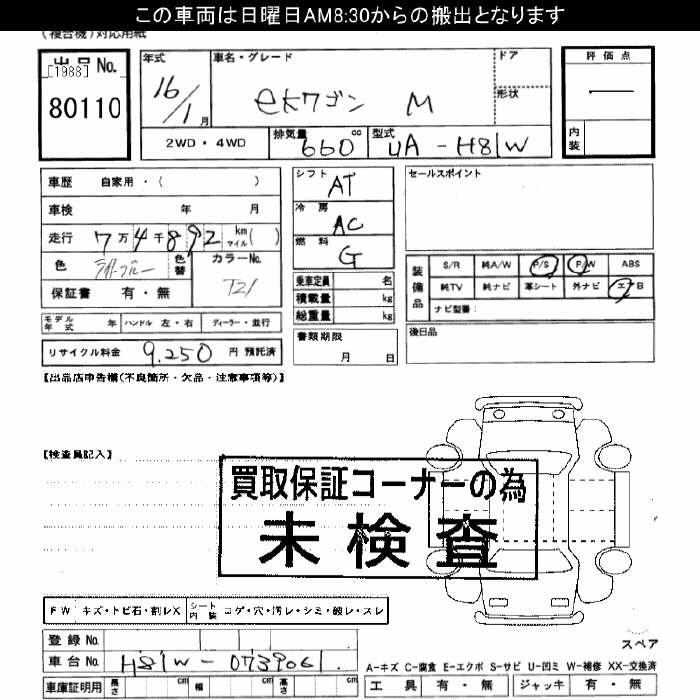 この車両は日曜日AM8:30からの搬出となります
(複合機)対応用紙
出品No.
[1988]
80110
年式
16/1月
車名・グレード
ekワゴン M
ドア
形状
2WD・4WD
排気量
660 cc
型式
UA-H81W
評価点
―
内装
車歴 自家用・( )
車検 年 月
走行 7万4千892 km マイル( )
色 ライトブルー
色替
カラーNo.
T21
保証書 有・無
シフト
AT
冷房
AC
燃料
G
乗車定員 名
積載量 kg
総重量 kg
セールスポイント
装備品
S/R 純A/W P/S P/W ABS
純TV 純ナビ 革シート 外ナビ エアB
ナビ型番:
モデル年式 年 ハンドル 左・右 ディーラー・並行
書類期限
月 日
後日品
リサイクル料金 9,250 円 預託済
【出品店申告欄(不良箇所・欠品・注意事項等)】
【検査員記入】
買取保証コーナーの為
未検査
FW キズ・トビ石・割レX
シート内装 コゲ・穴・汚レ・シミ・破レ・スレ
登録No.
車台No. H81W-0739061
車庫証明用 長さ cm 幅 cm 高さ cm
スペア
A-キズ C-腐食 E-エクボ S-サビ U-凹ミ W-補修 XX-交換済
工具 有・無 ジャッキ 有・無